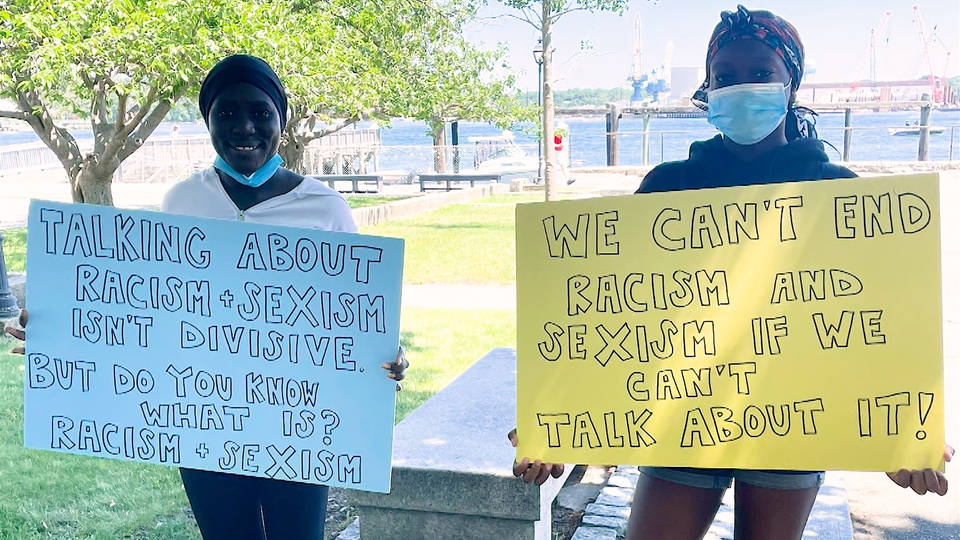 TALKING ABOUT
RACISM + SEXISM
ISN'T DIVISIVE.
BUT DO YOU KNOW
WHAT IS?
RACISM + SEXISM
WE CAN'T END
RACISM AND
SEXISM IF WE
CAN'T
TALK ABOUT IT!